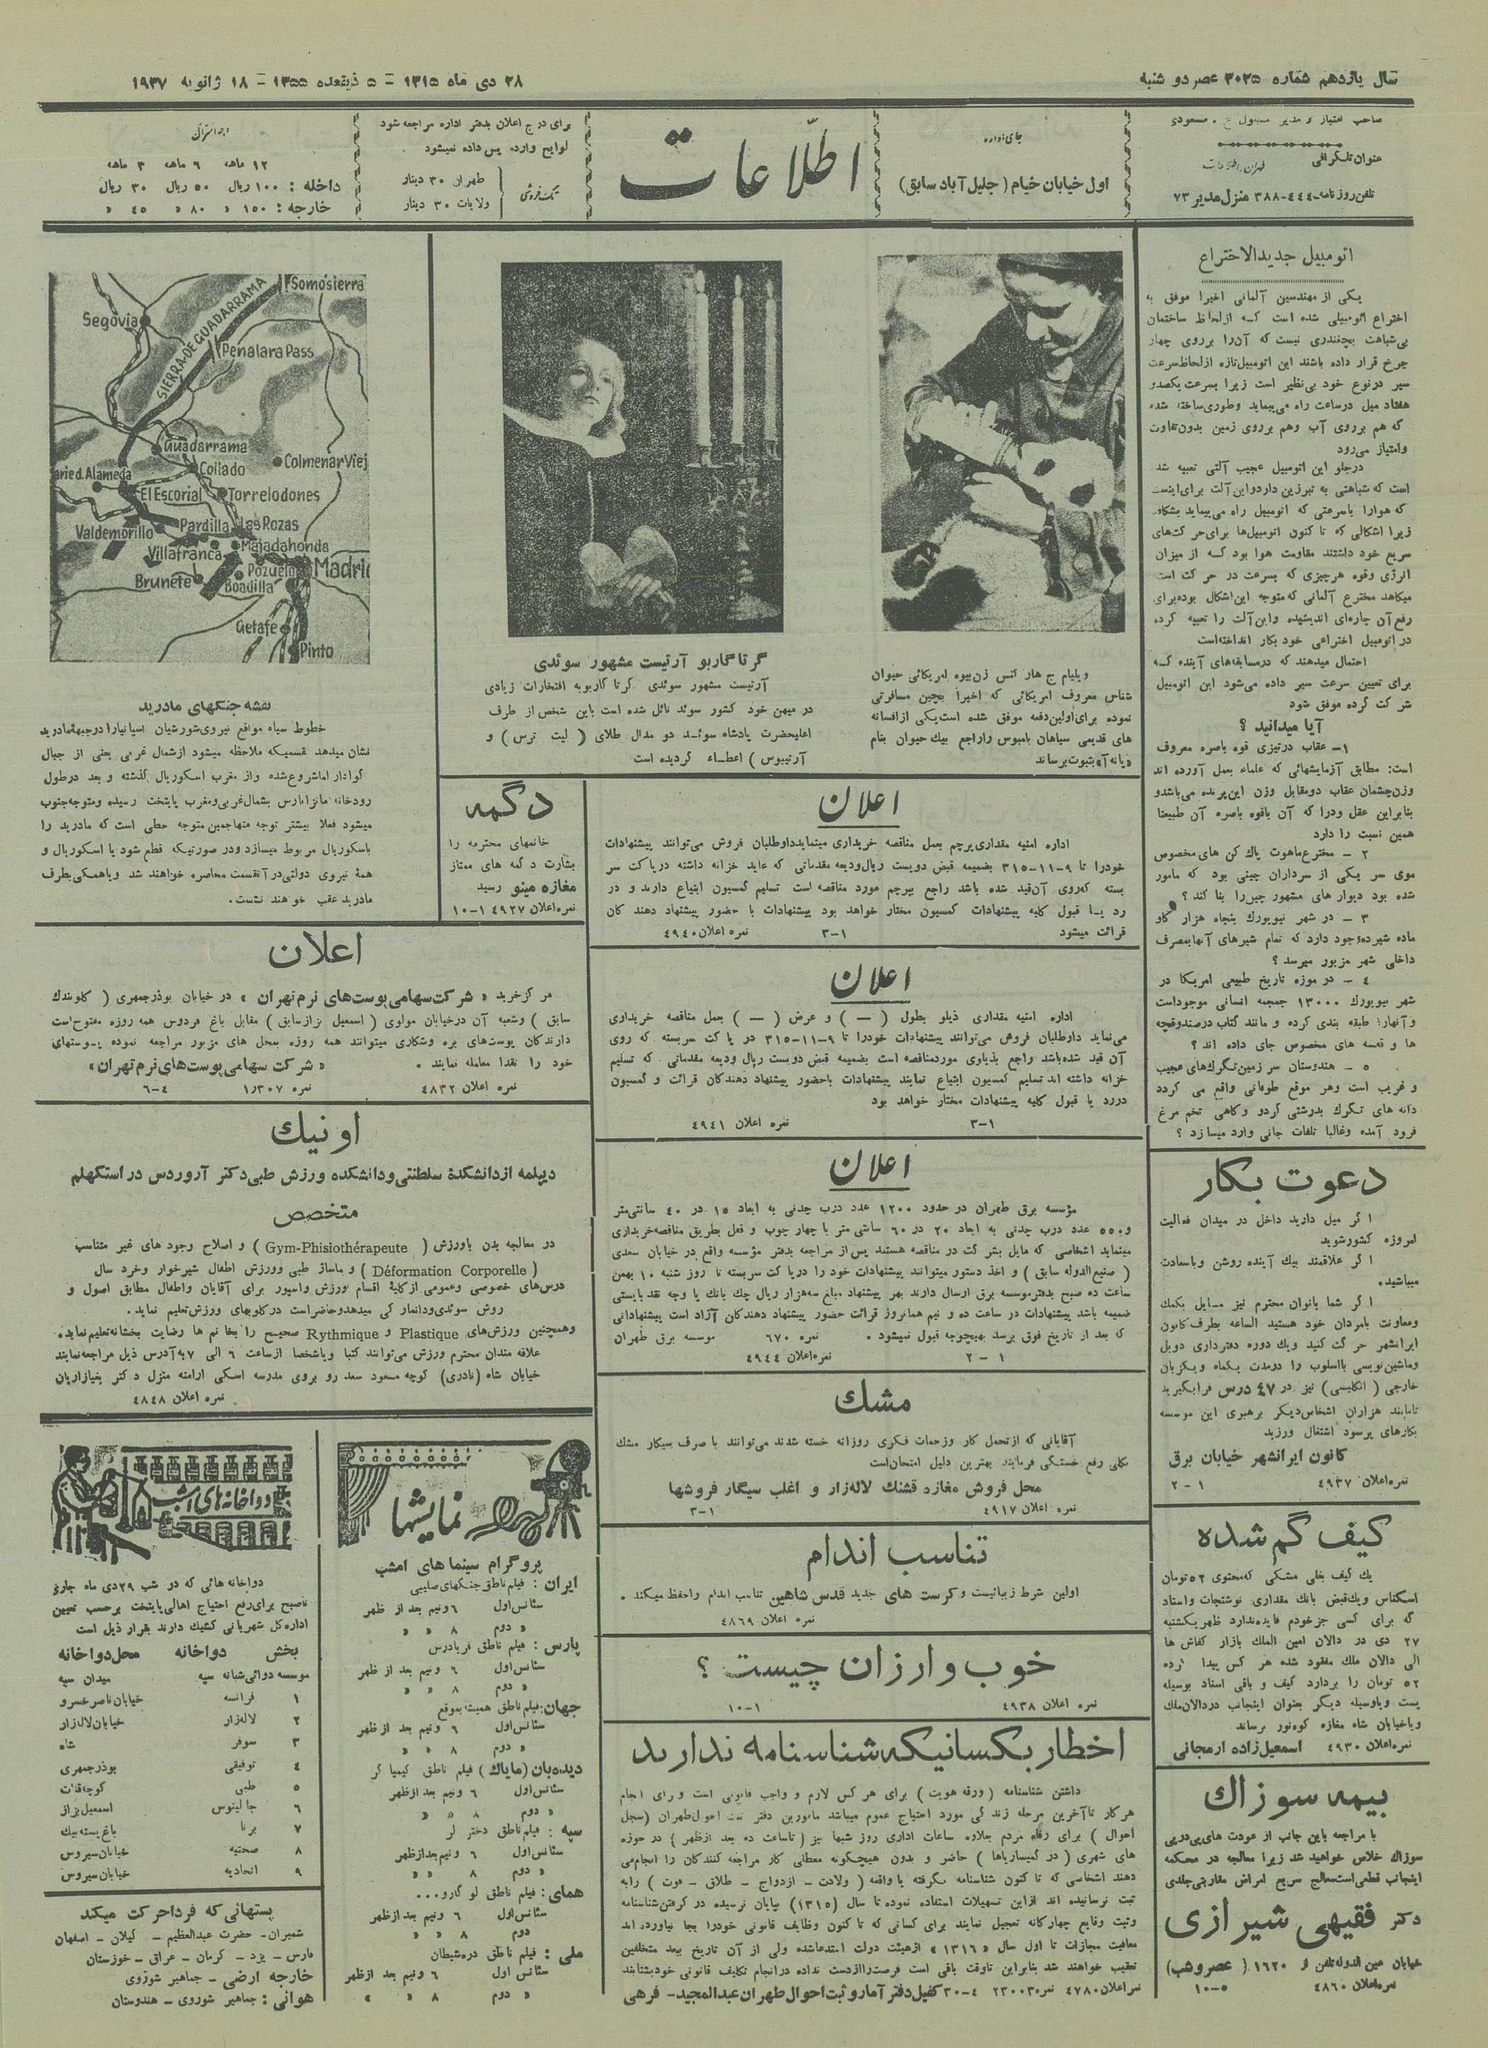 سال یازدهم شماره ۳۰۲۵ عصر دو شنبه
۲۸ دی ماه ۱۳۱۵ = ۵ ذیقعده ۱۳۵۵ = ۱۸ ژانویه ۱۹۳۷
صاحب امتیاز و مدیر مسئول ع . مسعودی
عنوان تلگرافی
طهران اطلاعات
تلفن روزنامه ٤٤٤-۳۸۸ منزل مدیر ۷۳
جای اداره
اول خیابان خیام ( جلیل آباد سابق )
اطلاعات
برای درج اعلان بدفتر اداره مراجعه شود
لوایح وارده پس داده نمیشود
تکفروشی
طهران ۳۰ دینار
ولایات ۳۰ دینار
وجه اشتراک
۱۲ ماهه ۶ ماهه ۳ ماهه
داخله : ۱۰۰ ریال ۵۰ ریال ۳۰ ریال
خارجه : ۱۵۰ « ۸۰ « ٤۵ «
اتومبیل جدیدالاختراع
یکی از مهندسین آلمانی اخیرا موفق به
اختراع اتومبیلی شده است که از لحاظ ساختمان
بی‌شباهت بچنذری نیست که آن‌را برروی چهار
چرخ قرار داده باشند این اتومبیل تازه از لحاظ سرعت
سیر درنوع خود بی‌نظیر است زیرا بسرعت یکصدو
هفتاد میل درساعت راه می‌پیماید وطوری ساخته شده
که هم برروی آب وهم برروی زمین بدون تفاوت
وامتیاز می‌رود
درجلو این اتومبیل عجیب آلتی تعبیه شد
است که شباهتی به تبرزین دارد و این آلت برای اینست
که هوارا باسرعتی که اتومبیل راه می‌پیماید بشکافد
زیرا اشکالی که تا کنون اتومبیل‌ها برای حرکت‌های
سریع خود داشتند مقاومت هوا بود که از میزان
انرژی وقوه هرچیزی که بسرعت در حرکت است
میکاهد مخترع آلمانی که متوجه این اشکال بوده برای
رفع آن چاره‌ای اندیشیده و این آلت را تعبیه کرده
در اتومبیل اختراعی خود بکار انداخته است
احتمال میدهند که درمسابقه‌های آینده که
برای تعیین سرعت سیر داده می‌شود این اتومبیل
شرکت کرده موفق شود
آیا میدانید ؟
۱- عقاب درتیزی قوه باصره معروف
است: مطابق آزمایشهائی که علماء بعمل آورده اند
وزن چشمان عقاب دو مقابل وزن این پرنده می‌باشد و
بنابراین عقل ودرا که آن باقوه باصره آن طبیعتا
همین نسبت را دارد
۲ - مخترع ماهوت پاک کن های مخصوص
موی سر یکی از سرداران چینی بود که مامور
شده بود دیوار های مشهور چین را بنا کند ؟
۳ - در شهر نیویورک پنجاه هزار گاو
ماده شیرده وجود دارد که تمام شیرهای آنها بمصرف
داخلی شهر مزبور میرسد ؟
٤ - در موزه تاریخ طبیعی امریکا در
شهر نیویورک ۱۳۰۰۰ جمجمه انسانی موجود است
و آنهارا طبقه بندی کرده و مانند کتاب درصندوقچه
ها و قفسه های مخصوص جای داده اند ؟
۵ - هندوستان سر زمین تگرگ‌های عجیب
و غریب است وهر موقع طوفانی واقع می گردد
دانه های تگرگ بدرشتی گردو وگاهی تخم مرغ
فرود آمده وغالبا تلفات جانی وارد میسازد ؟
دعوت بکار
اگر میل دارید داخل در میدان فعالیت
امروزه کشور شوید
اگر علاقمند بیک آینده روشن وباسعادت
میباشید.
اگر شما بانوان محترم نیز مایل بکمک
ومعاونت بامردان خود هستید الساعه بطرف کانون
ایرانشهر حرکت کنید ویک دوره دفترداری دوبل
وماشین نویسی بااسلوب را درمدت یکماه ویکزبان
خارجی ( انگلیسی ) نیز در ٤۷ درس فرا بگیرید
تا مانند هزاران اشخاص دیگر برهبری این موسسه
بکارهای پرسود اشتغال ورزید
کانون ایرانشهر خیابان برق
نمره اعلان ٤۹۳۷ ۱ - ۲
کیف گم شده
یک کیف بغلی مشکی که محتوی ۵۲ تومان
اسکناس ویک قبض بانک مقداری نوشتجات واسناد
که برای کسی جز خودم فایده ندارد ظهر یکشنبه
۲۷ دی در دالان امین الملک بازار کفاش ها
الی دالان ملک مفقود شده هر کس پیدا کرده
۵۲ تومان را بردارد کیف و باقی اسناد بوسیله
پست ویاوسیله دیگر بعنوان اینجانب در دالان ملک
ویا خیابان شاه مغازه کوه نور برساند
نمره اعلان ٤۹۳۰ اسمعیل زاده ارمجانی
بیمه سوزاک
با مراجعه باین جانب از عودت های پی‌درپی
سوزاک خلاص خواهید شد زیرا معالجه در محکمه
اینجانب قطعی است معالج سریع امراض مقاربتی جلدی
دکتر فقیهی شیرازی
خیابان عین الدوله تلفن ۱۶۲۰ ( عصروشب )
نمره اعلان ٤۸۶۰ ۵-۱۰
ویلیام ج هارکنس زن بیوه امریکائی حیوان
شناس معروف امریکائی که اخیرا بچین مسافرتی
نموده برای اولین دفعه موفق شده است یکی از افسانه
های قدیمی سیاهان بامبوس را راجع بیک حیوان بنام
« پانه آ » بثبوت برساند
گرتا گاربو آرتیست مشهور سوئدی
آرتیست مشهور سوئدی گرتا گاربو به افتخارات زیادی
در میهن خود کشور سوئد نائل شده است باین شخص از طرف
اعلیحضرت پادشاه سوئد دو مدال طلای ( لیت ترس ) و
آرتیبوس ) اعطاء گردیده است
Somosierra
Segovia
SIERRA-DE-GUADARRAMA
Penalara Pass
Guadarrama
Collado
Colmenar Viej
aried.Alameda
El Escorial
Torrelodones
Valdemorillo
Pardilla
Las Rozas
Villafranca
Majadahonda
Brunete
Pozuelo
Boadilla
Madrid
Getafe
Pinto
نقشه جنگهای مادرید
خطوط سیاه مواقع نیروی شورشیان اسپانیا را درجبهه مادرید
نشان میدهد قسمیکه ملاحظه میشود از شمال غربی یعنی از جبال
گوادارا ما شروع شده و از مغرب اسکوریال گذشته و بعد درطول
رودخانه مانزانارس بشمال غربی و مغرب پایتخت رسیده ومتوجه جنوب
میشود فعلا بیشتر توجه مهاجمین متوجه خطی است که مادرید را
باسکوریال مربوط میسازد ودر صورتیکه قطع شود یا اسکوریال و
همۀ نیروی دولتی در آنقسمت محاصره خواهند شد ویا همگی بطرف
مادرید عقب خواهند نشست.
دگمه
خانمهای محترمه را
بشارت دگمه های ممتاز
مغازه مینو رسید
نمره اعلان ٤۹۲۷ ۱-۱۰
اعلان
اداره امنیه مقداری پرچم بعمل مناقصه خریداری مینماید داوطلبان فروش می‌توانند پیشنهادات
خودرا تا ۹-۱۱-۳۱۵ بضمیمه قبض دویست ریال ودیعه مقدماتی که عاید خزانه داشته در پاکت سر
بسته که روی آن قید شده باشد راجع بپرچم مورد مناقصه است تسلیم کمسیون ابتیاع دارند و در
رد یا قبول کلیه پیشنهادات کمسیون مختار خواهد بود پیشنهادات با حضور پیشنهاد دهندگان
قرائت میشود ۱-۳ نمره اعلان ٤۹٤۰
اعلان
اداره امنیه مقداری ذیلو بطول ( — ) و عرض ( — ) بعمل مناقصه خریداری
می‌نماید داوطلبان فروش می‌توانند پیشنهادات خودرا تا ۹-۱۱-۳۱۵ در پاکت سربسته که روی
آن قید شده باشد راجع بذیلوی مورد مناقصه است بضمیمه قبض دویست ریال ودیعه مقدماتی که تسلیم
خزانه داشته اند تسلیم کمسیون ابتیاع نمایند پیشنهادات باحضور پیشنهاد دهندگان قرائت و کمسیون
دررد یا قبول کلیه پیشنهادات مختار خواهد بود
۱-۳ نمره اعلان ٤۹٤۱
اعلان
مؤسسه برق طهران در حدود ۱۲۰۰ عدد درب چدنی به ابعاد ۱۵ در ٤۰ سانتی‌متر
و ۵۵۰ عدد درب چدنی به ابعاد ۲۰ در ۶۰ سانتی متر با چهار چوب و قفل بطریق مناقصه خریداری
مینماید اشخاصی که مایل بشرکت در مناقصه هستند پس از مراجعه بدفتر مؤسسه واقع در خیابان سعدی
( صنیع الدوله سابق ) و اخذ دستور میتوانند پیشنهادات خود را در پاکت سربسته تا روز شنبه ۱۰ بهمن
ساعت ده صبح بدفتر موسسه برق ارسال دارند بهر پیشنهاد مبلغ سه‌هزار ریال چک بانک یا وجه نقد بایستی
ضمیمه باشد پیشنهادات در ساعت ده و نیم همانروز قرائت حضور پیشنهاد دهندگان آزاد است پیشنهاداتی
که بعد از تاریخ فوق برسد بهیچوجه قبول نمیشود . نمره ۶۷۰ موسسه برق طهران
۱ - ۲ نمره اعلان ٤۹٤٤
مشک
آقایانی که از تحمل کار وزحمات فکری روزانه خسته شدند می‌توانند با صرف سیگار مشک
بکلی رفع خستگی فرمایند بهترین دلیل امتحان است
محل فروش مغازه قشنک لاله‌زار و اغلب سیگار فروشها
نمره اعلان ٤۹۱۷ ۱-۳
تناسب اندام
اولین شرط زیبائیست و کرست های جدید قدس شاهین تناسب اندام را حفظ میکند .
نمره اعلان ٤۸۶۹
خوب و ارزان چیست ؟
نمره اعلان ٤۹۳۸ ۱-۱۰
اخطار بکسانیکه شناسنامه ندارند
داشتن شناسنامه ( ورقه هویت ) برای هر کس لازم و واجب قانونی است و برای انجام
هر کار تا آخرین مرحله زندگی مورد احتیاج عموم میباشد مامورین دفتر ثبت احوال طهران ( سجل
احوال ) برای رفاه مردم بعلاوه ساعات اداری روز شبها نیز ( تا ساعت ده بعد از ظهر ) در حوزه
های شهری ( در کمیساریاها ) حاضر و بدون هیچگونه معطلی کار مراجعه کنندگان را انجام می
دهند اشخاصی که تا کنون شناسنامه نگرفته یا واقعه ( ولادت - ازدواج - طلاق - فوت ) را به
ثبت نرسانیده اند از این تسهیلات استفاده نموده تا سال (۱۳۱۵) بپایان نرسیده در گرفتن شناسنامه
وثبت وقایع چهارگانه تعجیل نمایند برای کسانی که تا کنون وظایف قانونی خودرا بجا نیاورده اند
معافیت مجازات تا اول سال « ۱۳۱۶ » از هیئت دولت استدعا شده ولی از آن تاریخ ببعد متخلفین
تعقیب خواهند شد بنابراین تاوقت باقی است فرصت را از دست نداده در انجام تکالیف قانونی خود بشتابند
نمره اعلان ٤۷۸۰ نمره ۲۳۰۰۳ ٤-۳۰ کفیل دفتر آمار و ثبت احوال طهران عبدالمجید - فرهی
اعلان
مرکز خرید « شرکت سهامی پوست های نرم تهران » در خیابان بوذرجمهری ( گلوبندک
سابق ) وشعبه آن درخیابان مولوی ( اسمعیل بزاز سابق ) مقابل باغ فردوس همه روزه مفتوح است
دارندگان پوست‌های بره وشکاری میتوانند همه روزه بمحل های مزبور مراجعه نموده پوستهای
خود را نقدا معامله نمایند . « شرکت سهامی پوست های نرم تهران »
نمره اعلان ٤۸۳۲ نمره ۱/۳۰۷ ٤-۶
اونیک
دیپلمه از دانشکدۀ سلطنتی و دانشکده ورزش طبی دکتر آروردس در استکهلم
متخصص
در معالجه بدن باورزش ( Gym-Phisiothérapeute ) و اصلاح وجود های غیر متناسب
( Déformation Corporelle ) و ماساژ طبی وورزش اطفال شیرخوار وخرد سال
درس‌های خصوصی وعمومی از کلیۀ اقسام ورزش واسپور برای آقایان واطفال مطابق اصول و
روش سوئدی و دانمارکی میدهد و حاضر است درکلوبهای ورزش تعلیم نماید.
وهمچنین ورزش‌های Plastique و Rythmique صحیح را بخانم ها رضایت بخشانه تعلیم نماید
علاقه مندان محترم ورزش می‌توانند کتبا و یا شخصا از ساعت ۶ الی ۷ به آدرس ذیل مراجعه نمایند
خیابان شاه (نادری) کوچه مسعود سعد رو بروی مدرسه اسکی ارامنه منزل دکتر بغیازاریان
نمره اعلان ٤۸٤۸
نمایشها
پروگرام سینما های امشب
ایران : فیلم ناطق جنگهای صلیبی
سئانس اول ۶ ونیم بعد از ظهر
« دوم ۸ « «
پارس : فیلم ناطق فریادرس
سئانس اول ۶ ونیم بعد از ظهر
« دوم ۸ « «
جهان: فیلم ناطق همیشه بموقع
سئانس اول ۶ ونیم بعد از ظهر
« دوم ۸ « «
دیده‌بان (مایاک) فیلم ناطق کیمیا گر
سئانس اول ۶ ونیم بعد از ظهر
« دوم ۸ « «
سپه : فیلم ناطق دختر لر
سئانس اول ۶ ونیم بعد از ظهر
« دوم ۸ « «
همای : فیلم ناطق لو گارو...
سئانس اول ۶ ونیم بعد از ظهر
دوم ۸ « «
ملی : فیلم ناطق دره شیطان
سئانس اول ۶ ونیم بعد از ظهر
« دوم ۸ « «
دواخانه های امشب
دواخانه هائی که در شب ۲۹ دی ماه جاری
تا صبح برای رفع احتیاج اهالی پایتخت برحسب تعیین
اداره کل شهربانی کشیک دارند بقرار ذیل است
بخش دواخانه محل دواخانه
موسسه دوائی شبانه سپه میدان سپه
۱ فرانسه خیابان ناصر خسرو
۲ لاله‌زار خیابان لاله‌زار
۳ سوفر شاه
٤ توفیقی بوذرجمهری
۵ طبی کوچه قنات
۶ جالینوس اسمعیل بزاز
۷ برنا باغ پسته بیک
۸ صحتیه خیابان سیروس
۹ اتحادیه خیابان سیروس
پستهائی که فردا حرکت میکند
شمیران- حضرت عبدالعظیم - گیلان - اصفهان
فارس - یزد - کرمان - عراق - خوزستان
خارجه ارضی - جماهیر شوروی
هوائی : جماهیر شوروی - هندوستان